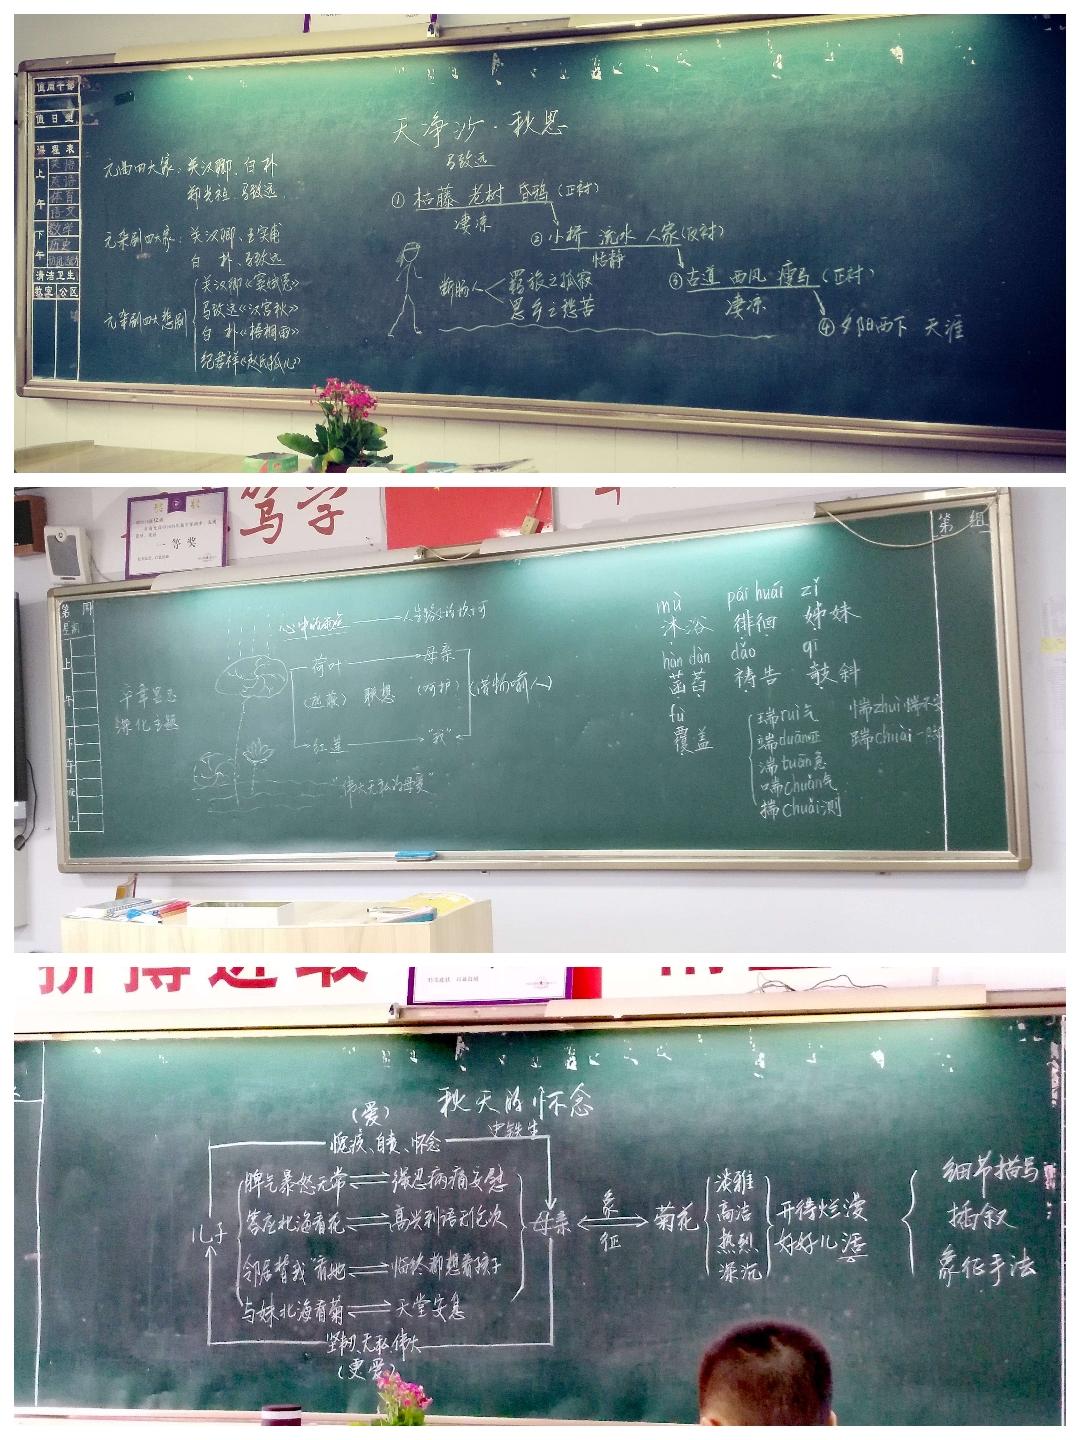 值周干部
值日生
课程表
上
午
体育
语文
下
数学
午
历史
清洁卫生
教室 公区
天净沙·秋思
马致远
元曲四大家:关汉卿、白朴
郑光祖、马致远
元杂剧四大家:关汉卿、王实甫
白朴、马致远
元杂剧四大悲剧
关汉卿《窦娥冤》
马致远《汉宫秋》
白朴《梧桐雨》
纪君祥《赵氏孤儿》
①枯藤 老树 昏鸦(正衬)
凄凉
②小桥 流水 人家(反衬)
恬静
③古道 西风 瘦马(正衬)
凄凉
④夕阳西下 天涯
断肠人
羁旅之孤寂
思乡之愁苦
笃学
一等奖
第 周
星期
上
午
下
午
第 组
卒章显志
深化主题
心中的雨点
荷叶
母亲
(遮蔽) 联想 (呵护) (借物喻人)
红莲
“我”
“伟大无私的母爱”
mù pái huái zǐ
沐浴 徘徊 姊妹
hàn dàn dǎo qī
菡萏 祷告 敧斜
fù
覆盖
瑞ruì气
端duān正
湍tuān急
喘chuǎn气
揣chuǎi测
惴zhuì惴不安
踹chuài一脚
拼搏进取
秋天的怀念
史铁生
(爱)
愧疚、自责、怀念
儿子
脾气暴怒无常
强忍病痛安慰
答应北海看花
高兴到语无伦次
邻居替“我”看她
临终都想着孩子
与妹北海看菊
天堂安息
坚韧、无私、伟大
(更爱)
母亲
象
征
菊花
淡雅
高洁
热烈
深沉
开得烂漫
好好儿活
细节描写
插叙
象征手法